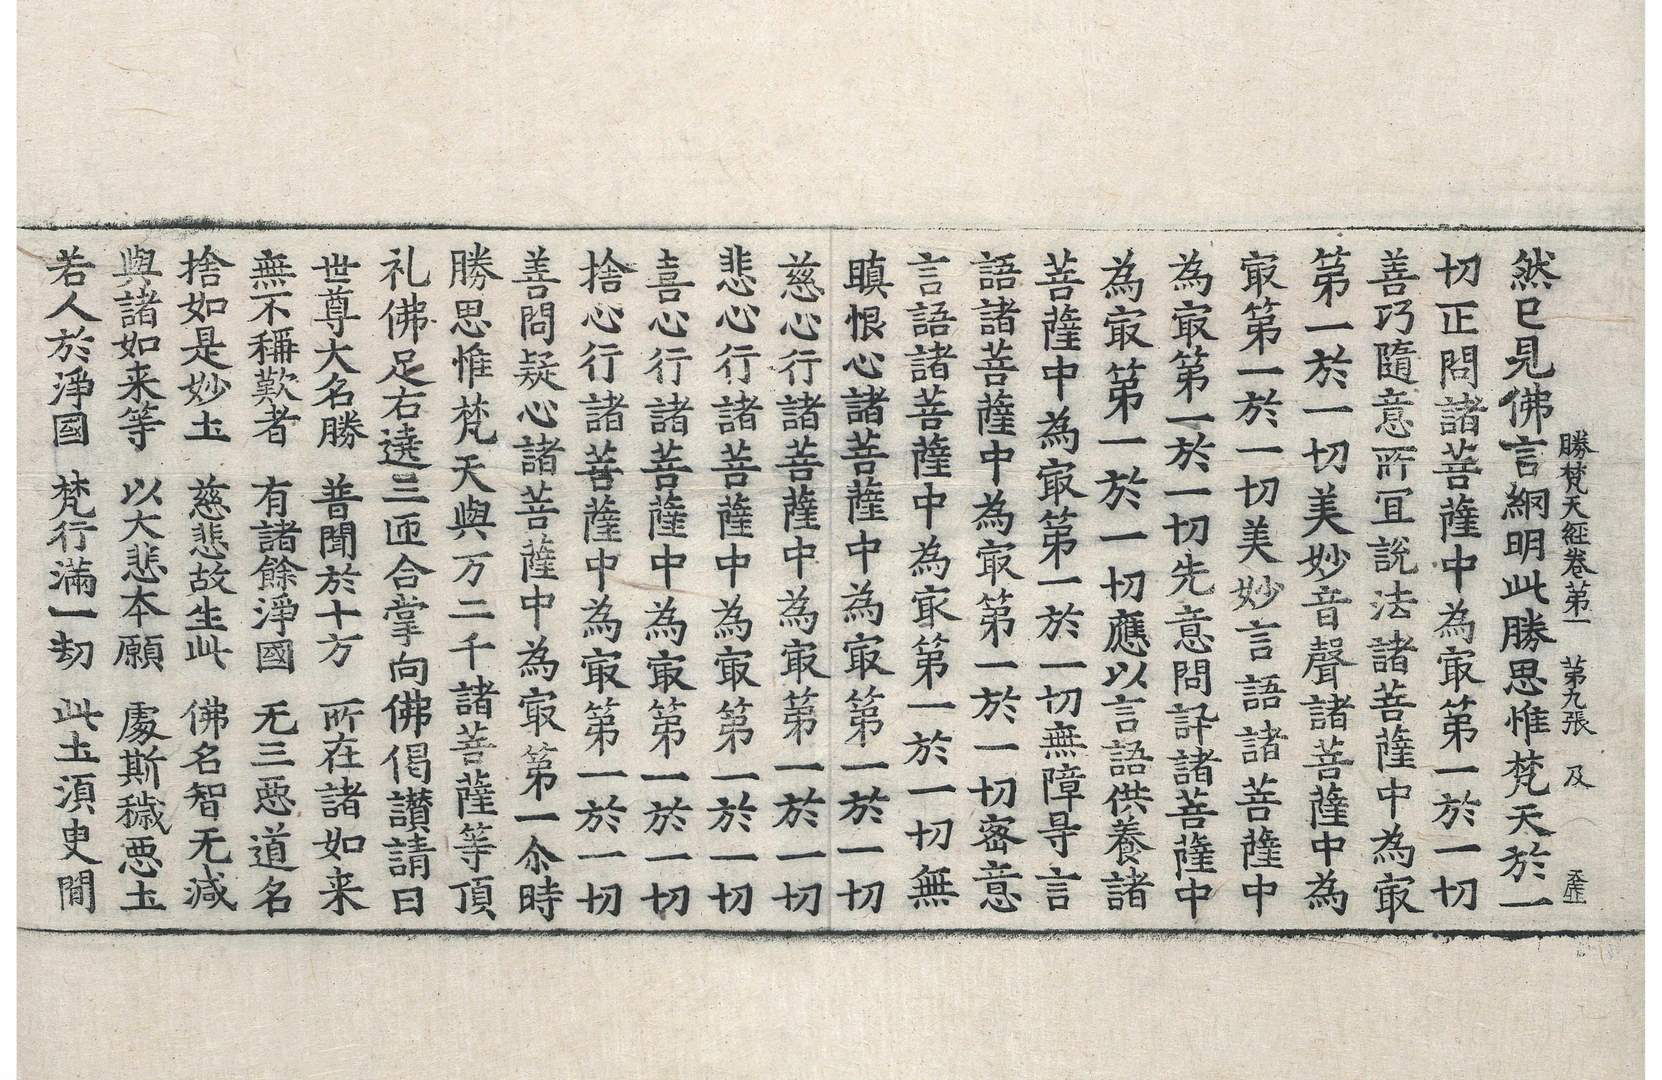 勝梵天經卷第一　第九張　及
然已見佛言網明此勝思惟梵天於一
切正問諸菩薩中為㝡第一於一切
善巧隨意所冝說法諸菩薩中為㝡
第一於一切美妙音聲諸菩薩中為
㝡第一於一切美妙言語諸菩薩中
為㝡第一於一切先意問訊諸菩薩中
為㝡第一於一切應以言語供養諸
菩薩中為㝡第一於一切無障㝵言
語諸菩薩中為㝡第一於一切密意
言語諸菩薩中為㝡第一於一切無
瞋恨心諸菩薩中為㝡第一於一切
慈心行諸菩薩中為㝡第一於一切
悲心行諸菩薩中為㝡第一於一切
喜心行諸菩薩中為㝡第一於一切
捨心行諸菩薩中為㝡第一於一切
善問疑心諸菩薩中為㝡第一尒時
勝思惟梵天與万二千諸菩薩等頂
礼佛足右遶三迊合掌向佛偈讃請曰
世尊大名勝　普聞於十方　所在諸如来
無不稱歎者　有諸餘淨國　无三惡道名
捨如是妙土　慈悲故生此　佛名智无減
與諸如来等　以大悲本願　處斯穢惡土
若人於淨國　梵行滿一劫　此土湏臾間